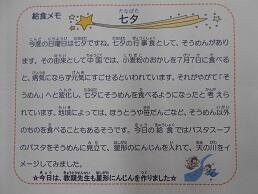 給食メモ
七夕
今度の日曜日は七夕ですね。七夕の行事食として、そうめんがあり
ます。その由来として中国では、小麦粉のおかしを7月7日に食べる
と、病気にならず元気にすごせるといわれています。それがやがて「そ
うめん」へと変化し、そうめんを七夕に食べるようになったと考えら
れています。地域によっては、ほうとうや笹だんごなど、そうめん以外
のものを食べることもあるそうです。今日の給食ではパスタスープ
のパスタをそうめんに見立て、星形のにんじんを入れて、天の川をイ
メージしてみました。
☆今日は、教頭先生も星形にんじんを作りました☆